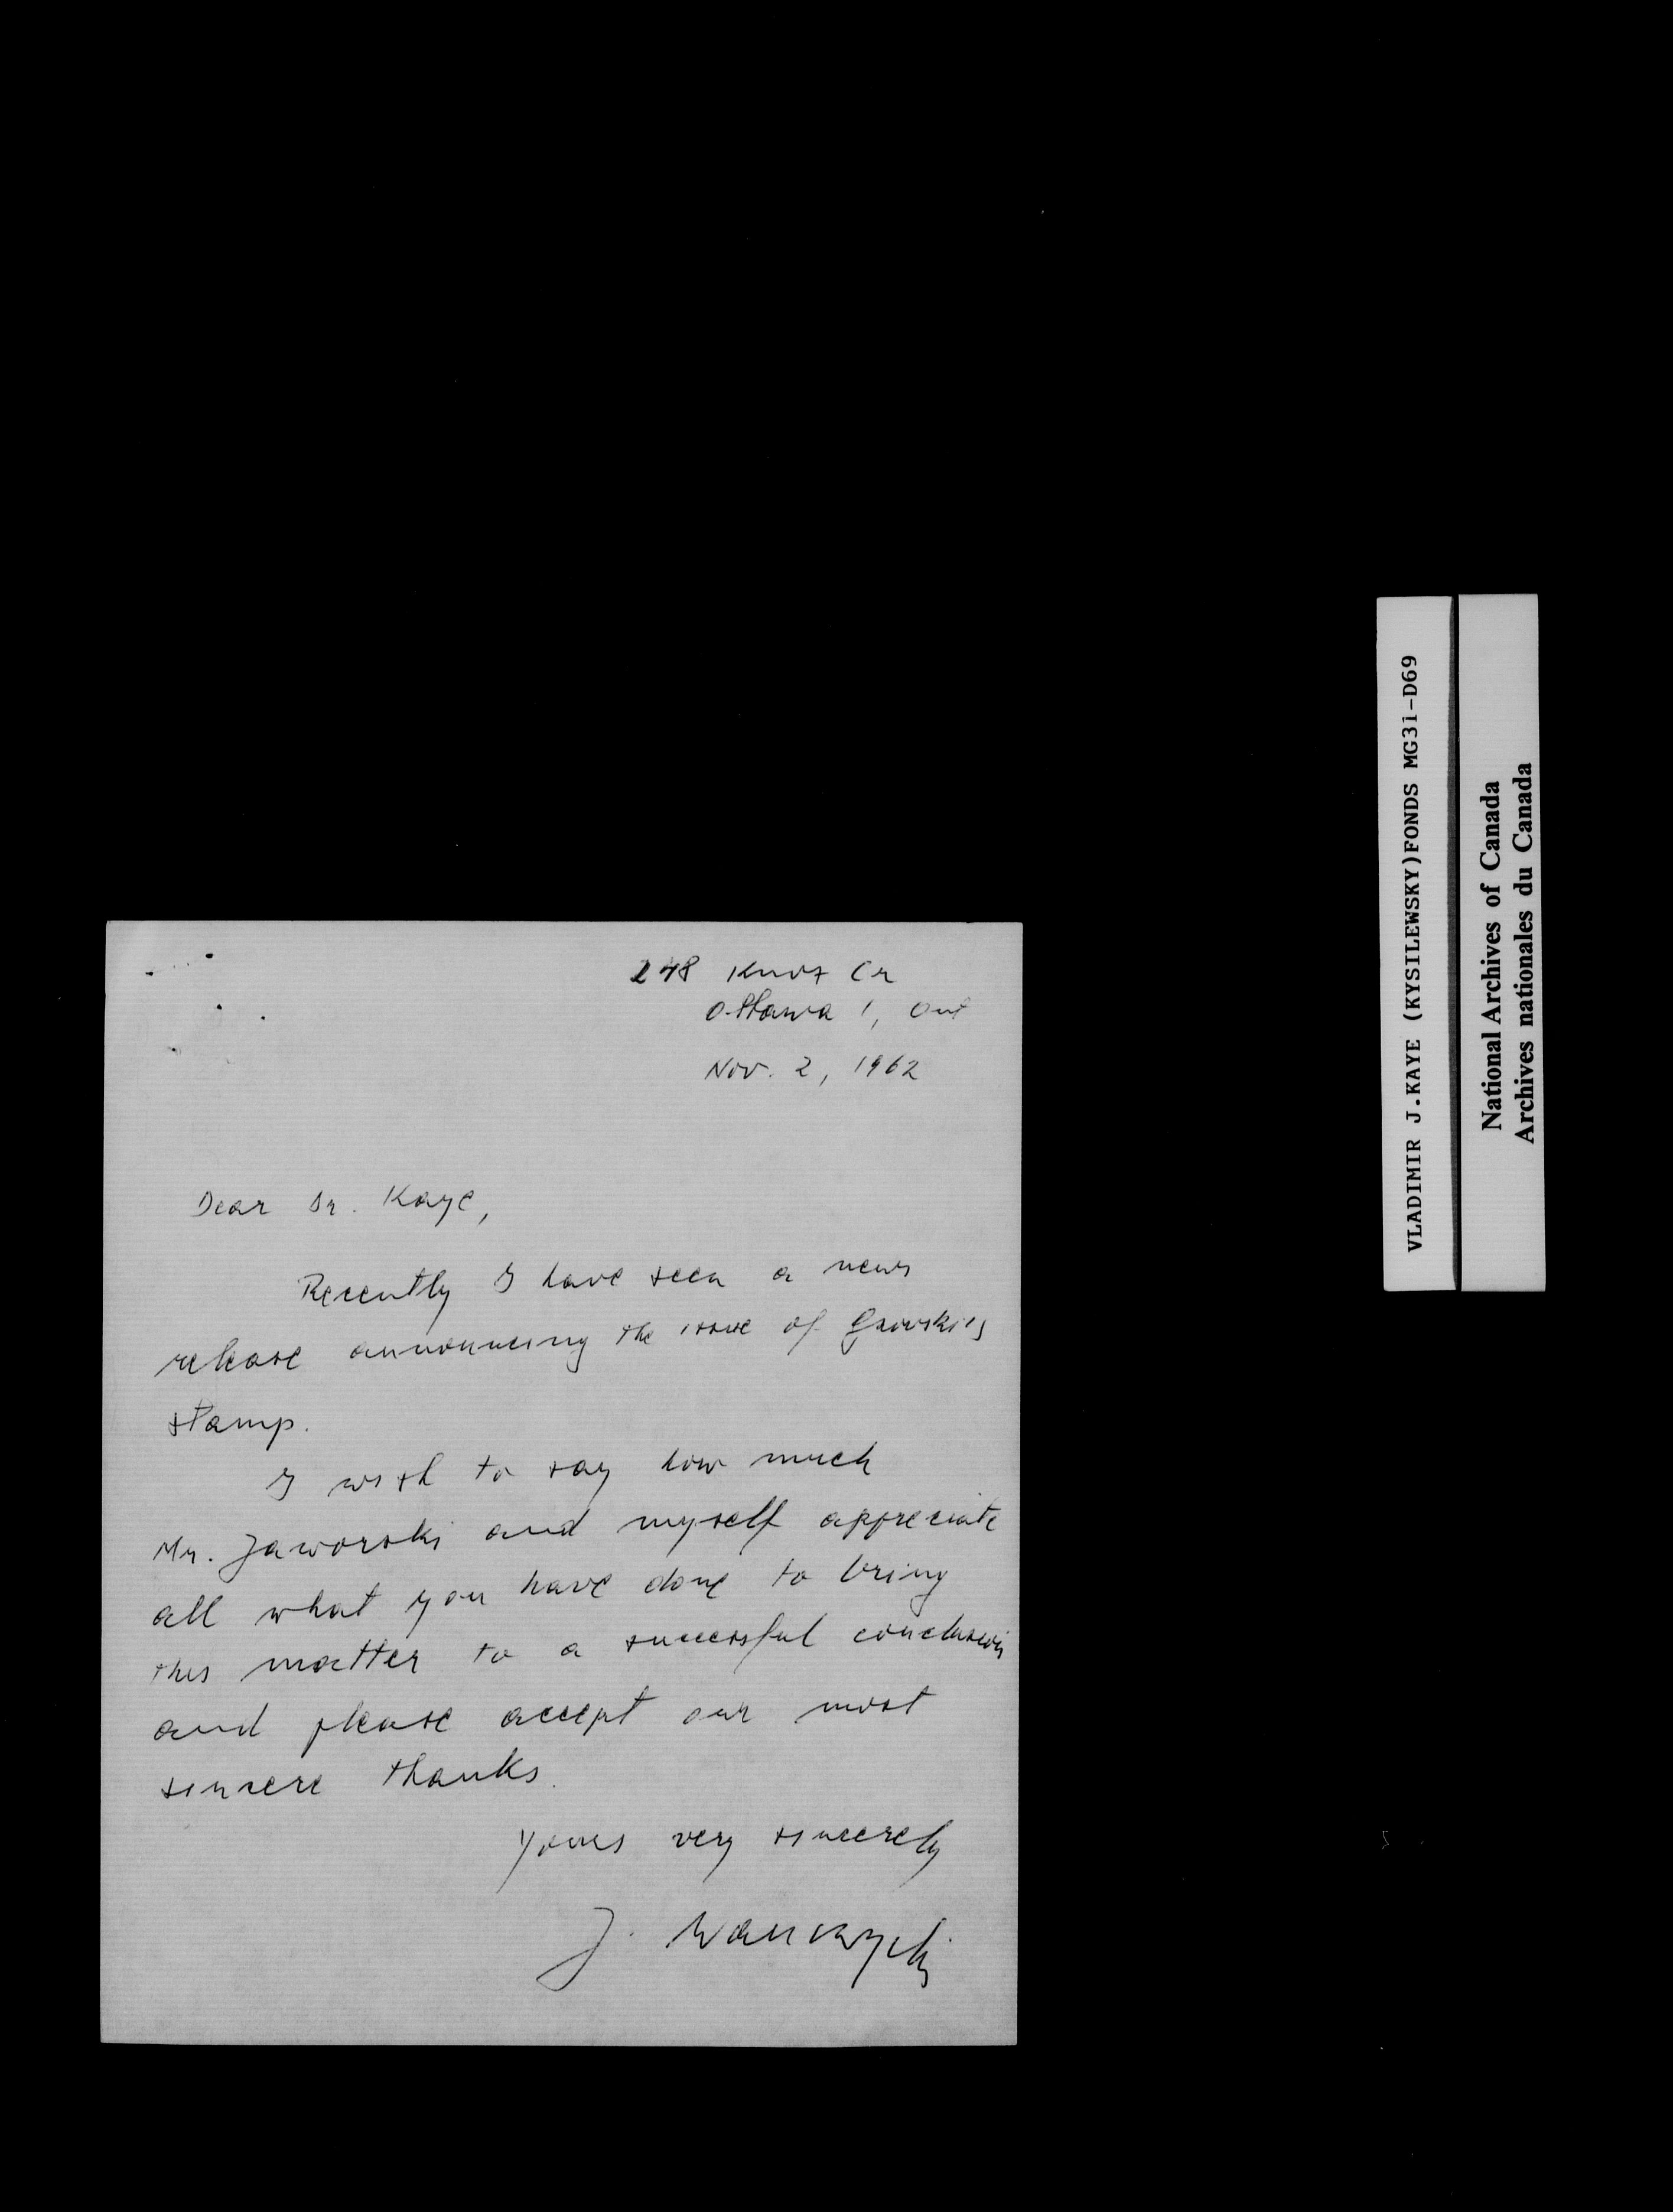 248 Knox Cr
Ottawa 1, Ont
Nov. 2, 1962
Dear Dr. Kaye,
Recently I have seen a news
release announcing the issue of Gzowski's
stamp.
I wish to say how much
Mr. Jaworski and myself appreciate
all what you have done to bring
this matter to a successful conclusion
and please accept our most
sincere thanks.
Yours very sincerely
J.
VLADIMIR J.KAYE (KYSILEWSKY)FONDS MG31-D69
National Archives of Canada
Archives nationales du Canada